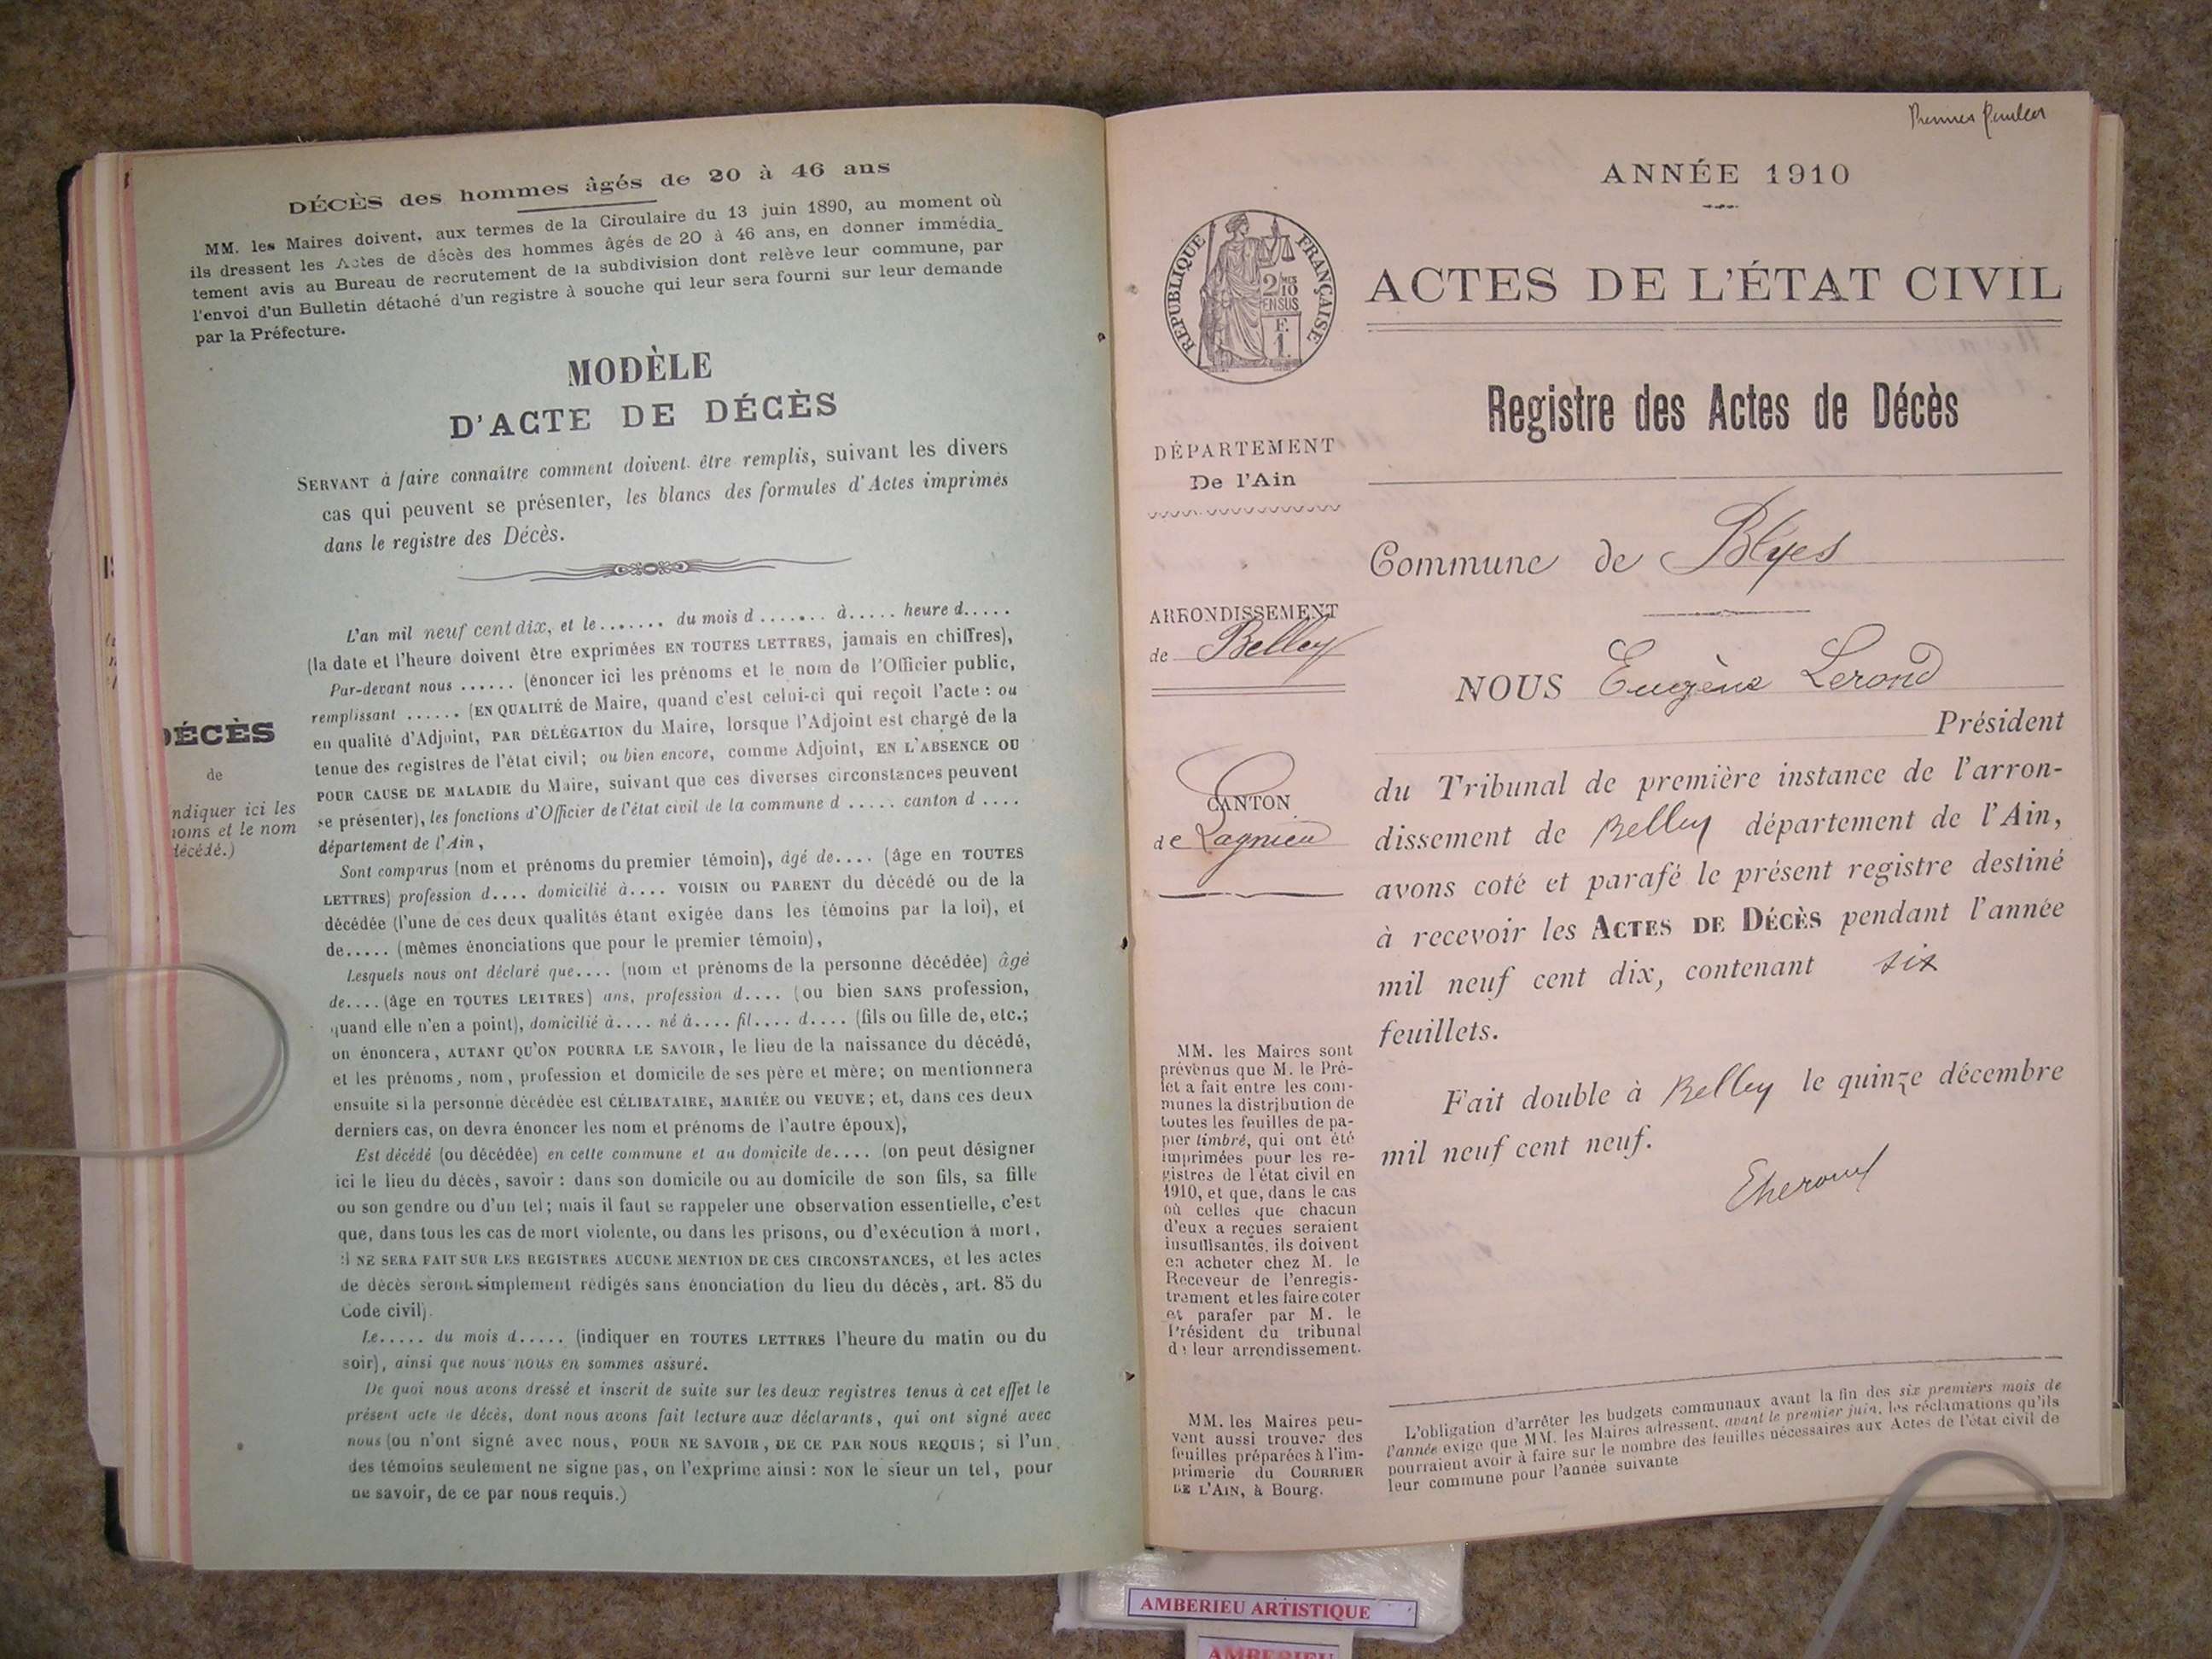 DÉCÈS des hommes âgés de 20 à 46 ans
MM. les Maires doivent, aux termes de la Circulaire du 13 juin 1890, au moment où
ils dressent les Actes de décès des hommes âgés de 20 à 46 ans, en donner immédia_
tement avis au Bureau de recrutement de la subdivision dont relève leur commune, par
l'envoi d'un Bulletin détaché d'un registre à souche qui leur sera fourni sur leur demande
par la Préfecture.
MODÈLE
D'ACTE DE DÉCÈS
SERVANT à faire connaître comment doivent être remplis, suivant les divers
cas qui peuvent se présenter, les blancs des formules d'Actes imprimés
dans le registre des Décès.
DÉCÈS
de
ndiquer ici les
noms et le nom
décédé.)
L'an mil neuf cent dix, et le....... du mois d ....... à..... heure d.....
(la date et l'heure doivent être exprimées EN TOUTES LETTRES, jamais en chiffres),
Par-devant nous ...... (énoncer ici les prénoms et le nom de l'Officier public,
remplissant ...... (EN QUALITÉ de Maire, quand c'est celui-ci qui reçoit l'acte : ou
en qualité d'Adjoint, PAR DÉLÉGATION du Maire, lorsque l'Adjoint est chargé de la
tenue des registres de l'état civil; ou bien encore, comme Adjoint, EN L'ABSENCE OU
POUR CAUSE DE MALADIE du Maire, suivant que ces diverses circonstances peuvent
se présenter), les fonctions d'Officier de l'état civil de la commune d ..... canton d ....
département de l'Ain,
Sont comparus (nom et prénoms du premier témoin), âgé de.... (âge en TOUTES
LETTRES) profession d.... domicilié à.... VOISIN OU PARENT du décédé ou de la
décédée (l'une de ces deux qualités étant exigée dans les témoins par la loi), et
de..... (mêmes énonciations que pour le premier témoin),
Lesquels nous ont déclaré que.... (nom et prénoms de la personne décédée) âgé
de.... (âge en TOUTES LETTRES) ans, profession d.... (ou bien SANS profession,
quand elle n'en a point), domicilié à.... né à.... fil.... d.... (fils ou fille de, etc.;
on énoncera, AUTANT QU'ON POURRA LE SAVOIR, le lieu de la naissance du décédé,
et les prénoms, nom, profession et domicile de ses père et mère; on mentionnera
ensuite si la personne décédée est CÉLIBATAIRE, MARIÉE OU VEUVE; et, dans ces deux
derniers cas, on devra énoncer les nom et prénoms de l'autre époux),
Est décédé (ou décédée) en cette commune et au domicile de.... (on peut désigner
ici le lieu du décès, savoir : dans son domicile ou au domicile de son fils, sa fille
ou son gendre ou d'un tel; mais il faut se rappeler une observation essentielle, c'est
que, dans tous les cas de mort violente, ou dans les prisons, ou d'exécution à mort,
il NE SERA FAIT SUR LES REGISTRES AUCUNE MENTION DE CES CIRCONSTANCES, et les actes
de décès seront simplement rédigés sans énonciation du lieu du décès, art. 85 du
Code civil).
Le..... du mois d..... (indiquer en TOUTES LETTRES l'heure du matin ou du
soir), ainsi que nous nous en sommes assuré.
De quoi nous avons dressé et inscrit de suite sur les deux registres tenus à cet effet le
présent acte de décès, dont nous avons fait lecture aux déclarants, qui ont signé avec
nous (ou n'ont signé avec nous, POUR NE SAVOIR, DE CE PAR NOUS REQUIS; si l'un
des témoins seulement ne signe pas, on l'exprime ainsi : NON le sieur un tel, pour
ne savoir, de ce par nous requis.)
ANNÉE 1910
RÉPUBLIQUE FRANÇAISE
2/10
EN SUS
F.
1.
ACTES DE L'ÉTAT CIVIL
Registre des Actes de Décès
DÉPARTEMENT
De l'Ain
Commune de Blyes
ARRONDISSEMENT
de Belley
CANTON
de Lagnieu
NOUS Eugène Lerond
Président
du Tribunal de première instance de l'arron-
dissement de Belley département de l'Ain,
avons coté et parafé le présent registre destiné
à recevoir les ACTES DE DÉCÈS pendant l'année
mil neuf cent dix, contenant six
feuillets.
Fait double à Belley le quinze décembre
mil neuf cent neuf.
MM. les Maires sont
prévenus que M. le Pré-
fet a fait entre les com-
munes la distribution de
toutes les feuilles de pa-
pier timbré, qui ont été
imprimées pour les re-
gistres de l'état civil en
1910, et que, dans le cas
où celles que chacun
d'eux a reçues seraient
insuffisantes, ils doivent
en acheter chez M. le
Receveur de l'enregis-
trement et les faire coter
et parafer par M. le
Président du tribunal
de leur arrondissement.
MM. les Maires peu-
vent aussi trouver des
feuilles préparées à l'im-
primerie du COURRIER
DE L'AIN, à Bourg.
L'obligation d'arrêter les budgets communaux avant la fin des six premiers mois de
l'année exige que MM. les Maires adressent, avant le premier juin, les réclamations qu'ils
pourraient avoir à faire sur le nombre des feuilles nécessaires aux Actes de l'état civil de
leur commune pour l'année suivante
AMBERIEU ARTISTIQUE
AMBERIEU